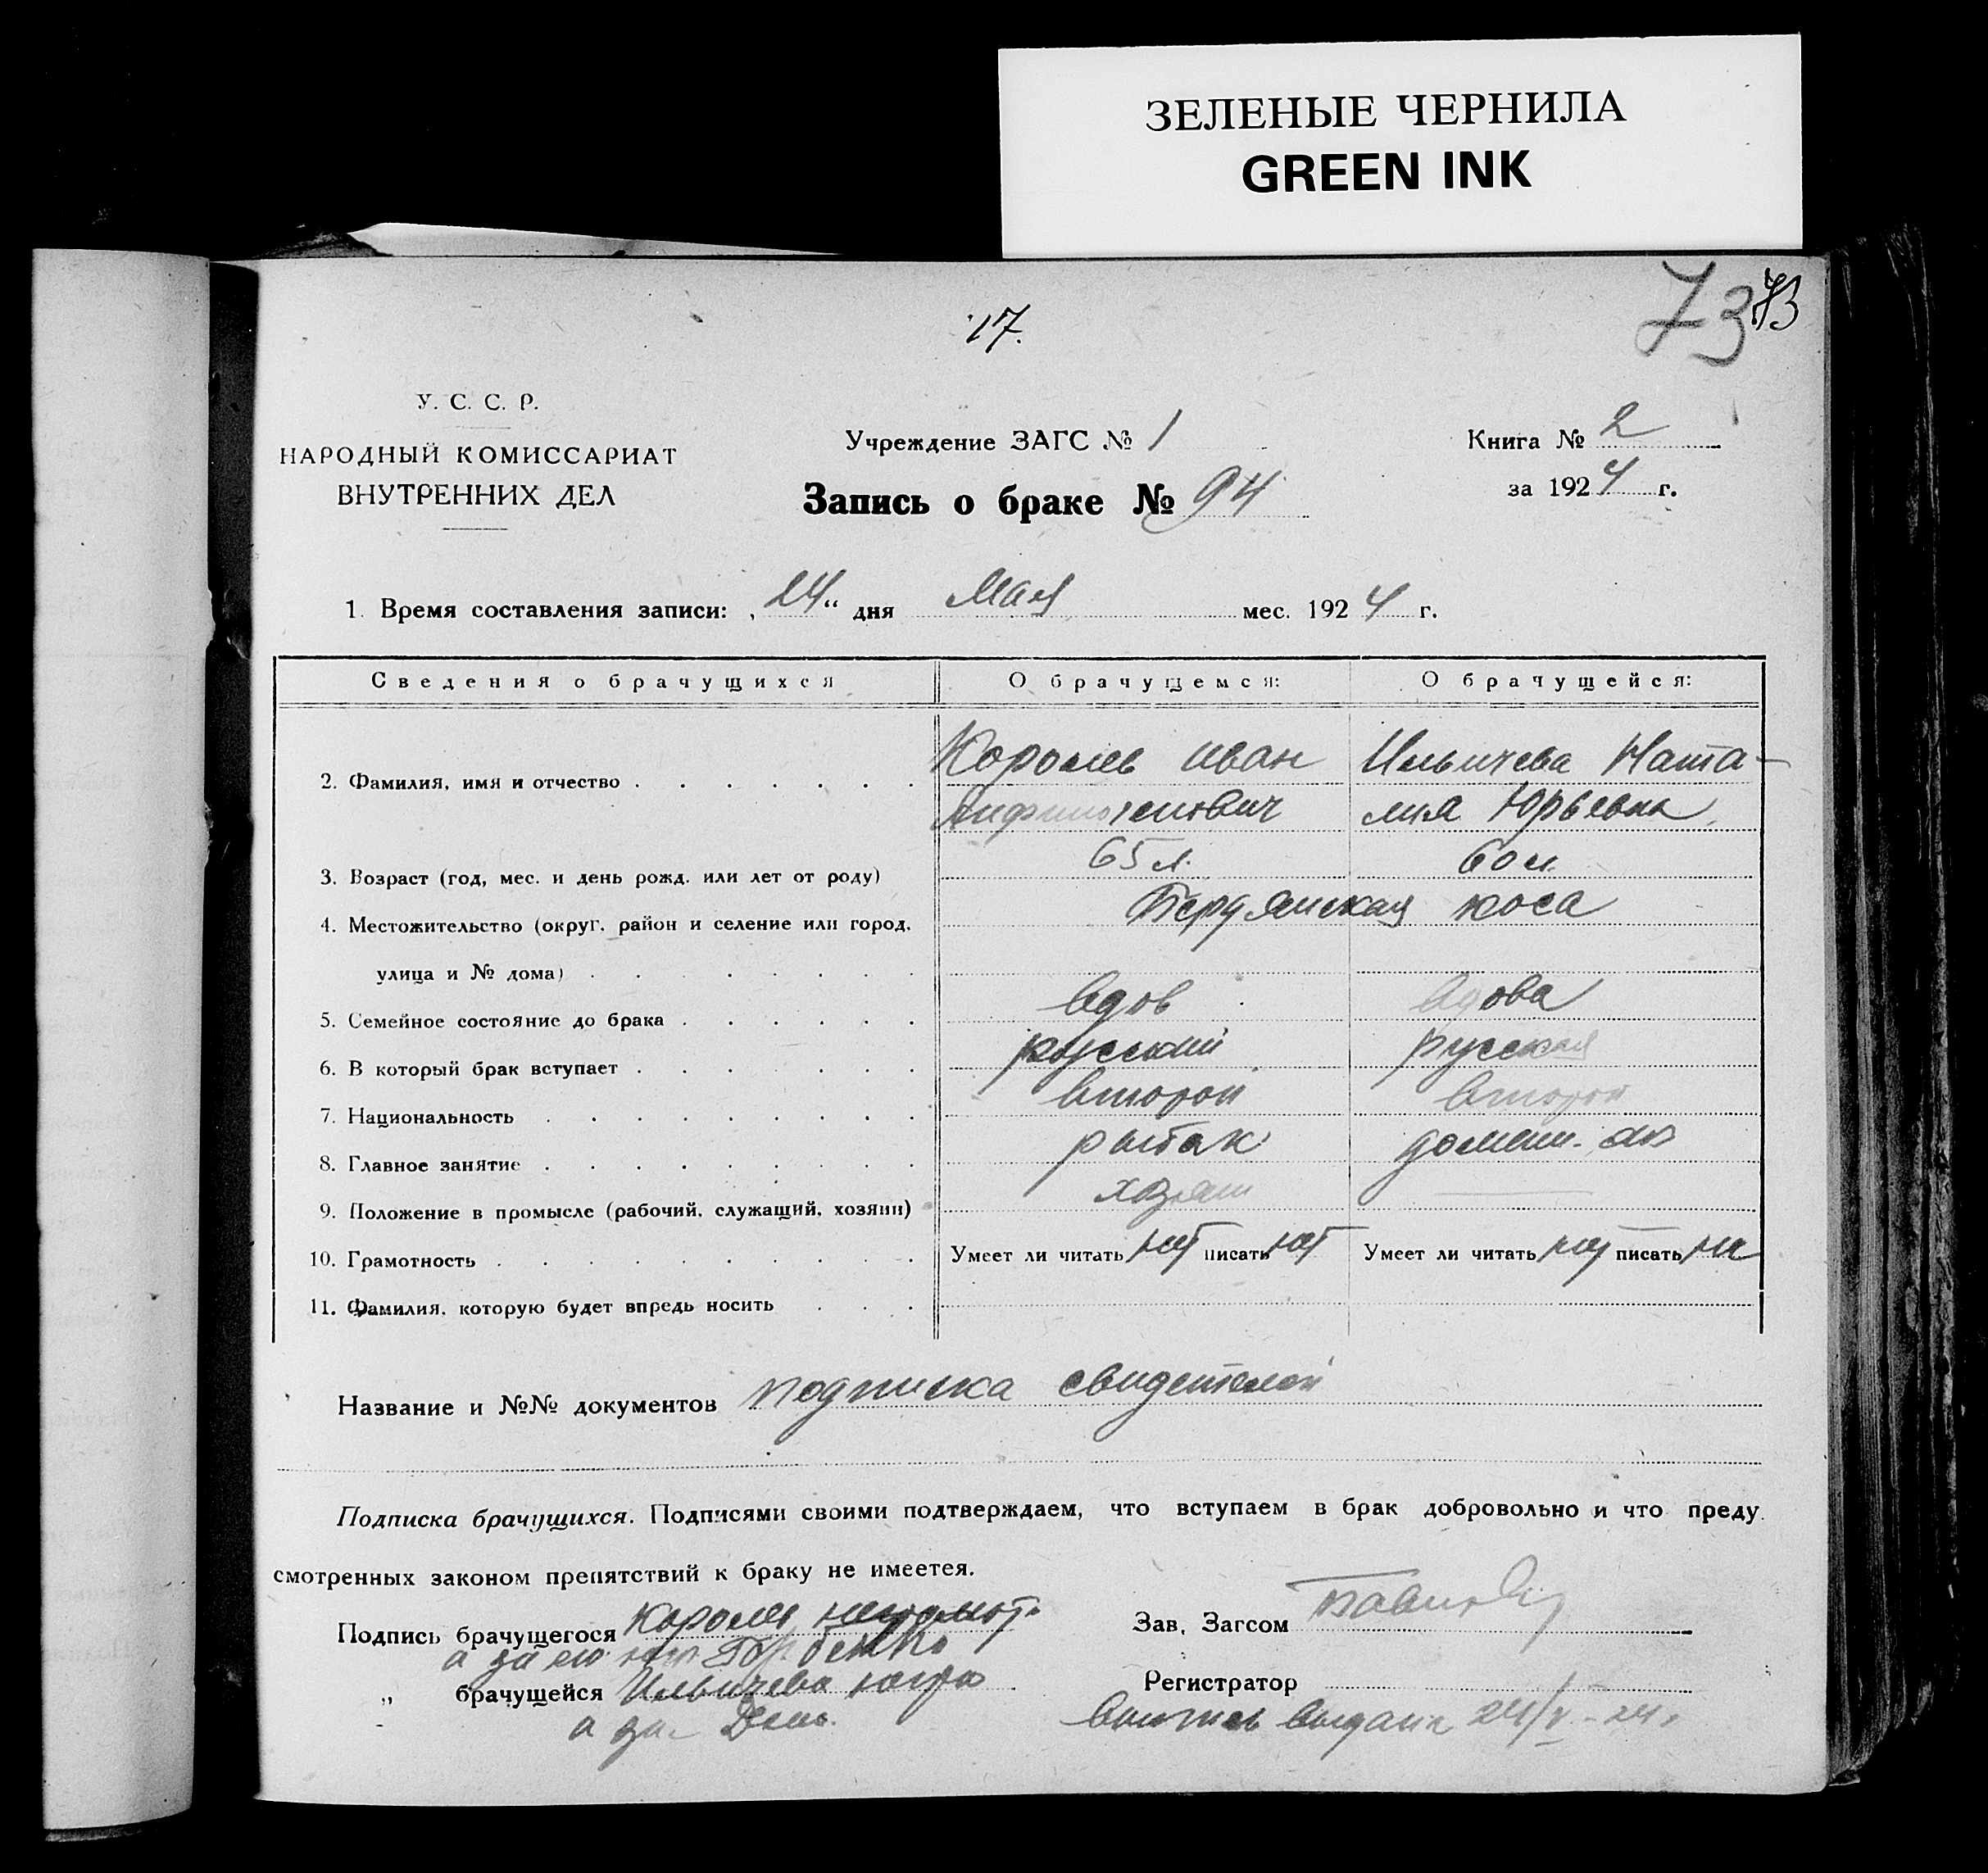 ЗЕЛЕНЫЕ ЧЕРНИЛА
GREEN INK
17.
73 73
У. С. С. Р.
НАРОДНЫЙ КОМИССАРИАТ
ВНУТРЕННИХ ДЕЛ
Учреждение ЗАГС № 1
Запись о браке № 94
Книга № 2
за 1924 г.
1. Время составления записи: „24“ дня Мая мес. 1924 г.
Сведения о брачущихся О брачущемся: О брачущейся:
Королев Иван Ильичева Ната-
2. Фамилия, имя и отчество
лия Юрьевна
65 л. 60 л.
3. Возраст (год, мес. и день рожд. или лет от роду)
Бердянская коса
4. Местожительство (округ. район и селение или город,
улица и № дома)
вдов вдова
5. Семейное состояние до брака
русский русская
6. В который брак вступает
второй второй
7. Национальность
рыбак домашн.
8. Главное занятие
хозяин
9. Положение в промысле (рабочий, служащий, хозяин)
10. Грамотность Умеет ли читать нет писать нет Умеет ли читать нет писать не
11. Фамилия, которую будет впредь носить
Название и №№ документов подписка свидетелей
Подписка брачущихся. Подписями своими подтверждаем, что вступаем в брак добровольно и что преду
смотренных законом препятствий к браку не имеется.
Подпись брачущегося Королев неграмот.
а за его
Зав. Загсом
„ брачущейся Ильичева негр
а за
Регистратор
выпись выдана 24/V-24.